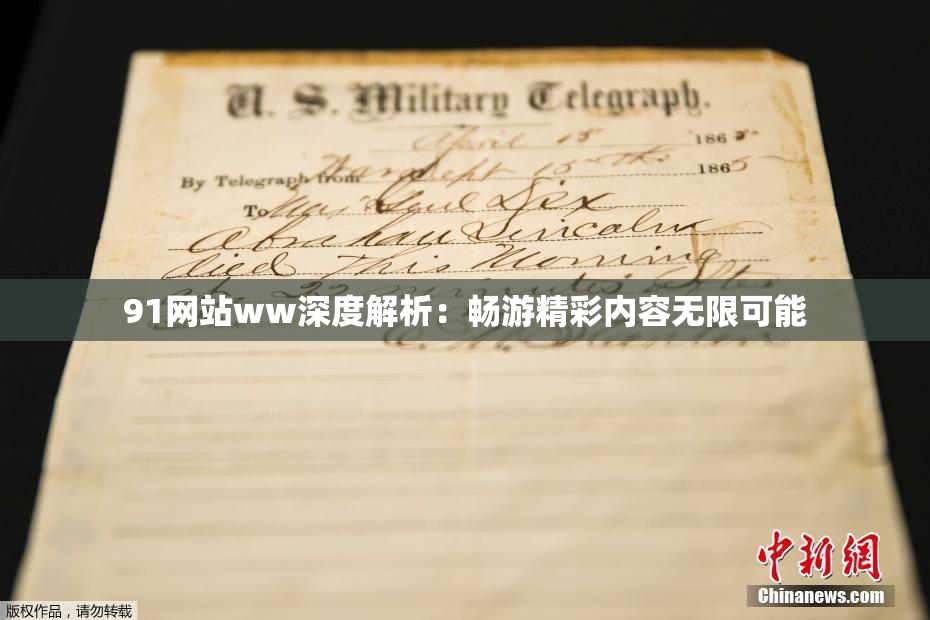 U. S. Military Telegraph.
April 15 1865
By Telegraph from War Dept 15th 1865
To Maj Genl Dix
Abraham Lincoln
died This Morning
at 22 minutes after
91网站ww深度解析：畅游精彩内容无限可能
E. M. Stanton
中新网
Chinanews.com
版权作品，请勿转载